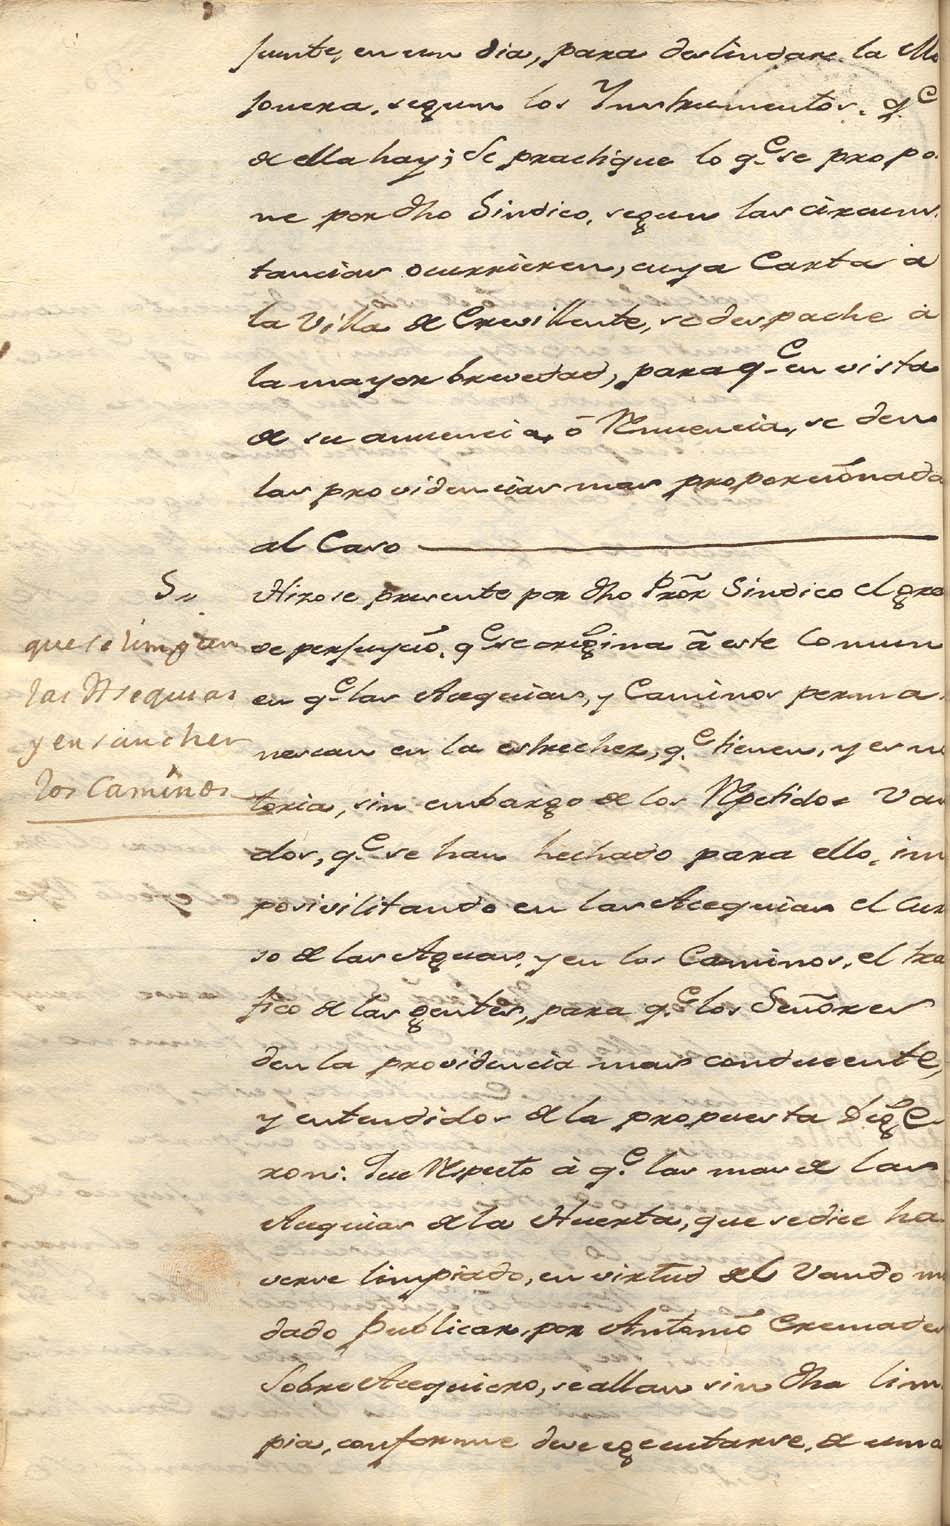 junte, en un dia, para deslindar la Mo
jonera, segun los Ynstrumentos, q.e
de ella hay; Se practique lo q.e se propo
ne por dho Sindico, segun las circuns
tancias ocurrieren, cuya Carta à
la Villa de Crevillente, se despache à
la mayor brevedad, para q.e en vista
de su anuencia, ò Renuencia, se den
las providencias mas proporcionada
al Caso
5,,
que se limpien
las Asequias
y ensanchen
los Caminos
Hizose presente por dho Pror Sindico el gra
de perjuycio, q.e se origina à este Comun
en q.e las Asequias, y Caminos perma
nescan en la estrechez, q.e tienen, y es no
toria, sin embargo de los Repetidos Van
dos, q.e se han hechado para ello, im
posivilitando en las Acequias el Cur
so de las Aguas, y en los Caminos, el tra
fico de las gentes, para q.e los Señores
den la providencia mas conducente,
y entendidos de la propuesta
Que Respecto à q.e las mas de las
Asequias de la Huerta, que se dice ha
verse limpiado, en virtud del Vando m
dado Publicar, por Antonio Cremades
Sobre Acequiero, se allan sin dha lim
pia, conforme deve egecutarse, de una